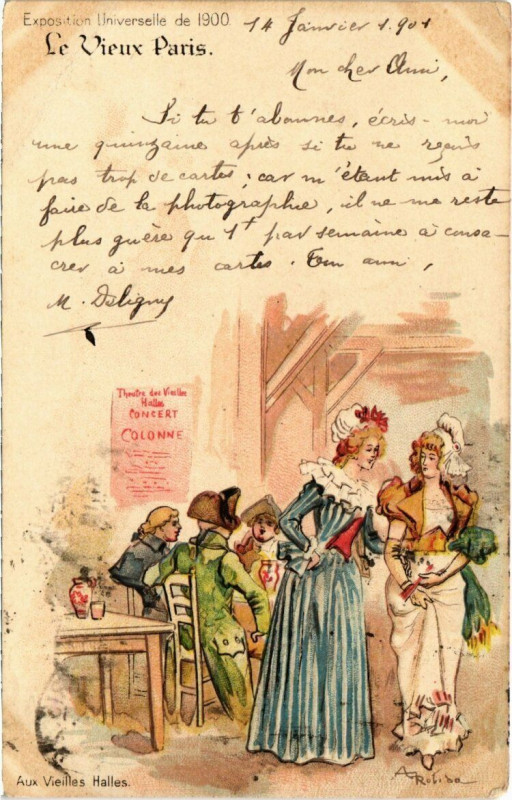 Exposition Universelle de 1900.
14 Janvier 1.901
Le Vieux Paris.
Mon cher Ami,
Si tu t'abonnes, écris-moi
une quinzaine après si tu ne reçois
pas trop de cartes; car m'étant mis à
faire de la photographie, il ne me reste
plus guère qu'1 par semaine à consa-
crer à mes cartes. Ton ami,
M. Deligny
Théatre des Vieilles
Halles
CONCERT
COLONNE
Aux Vieilles Halles.
A Robida